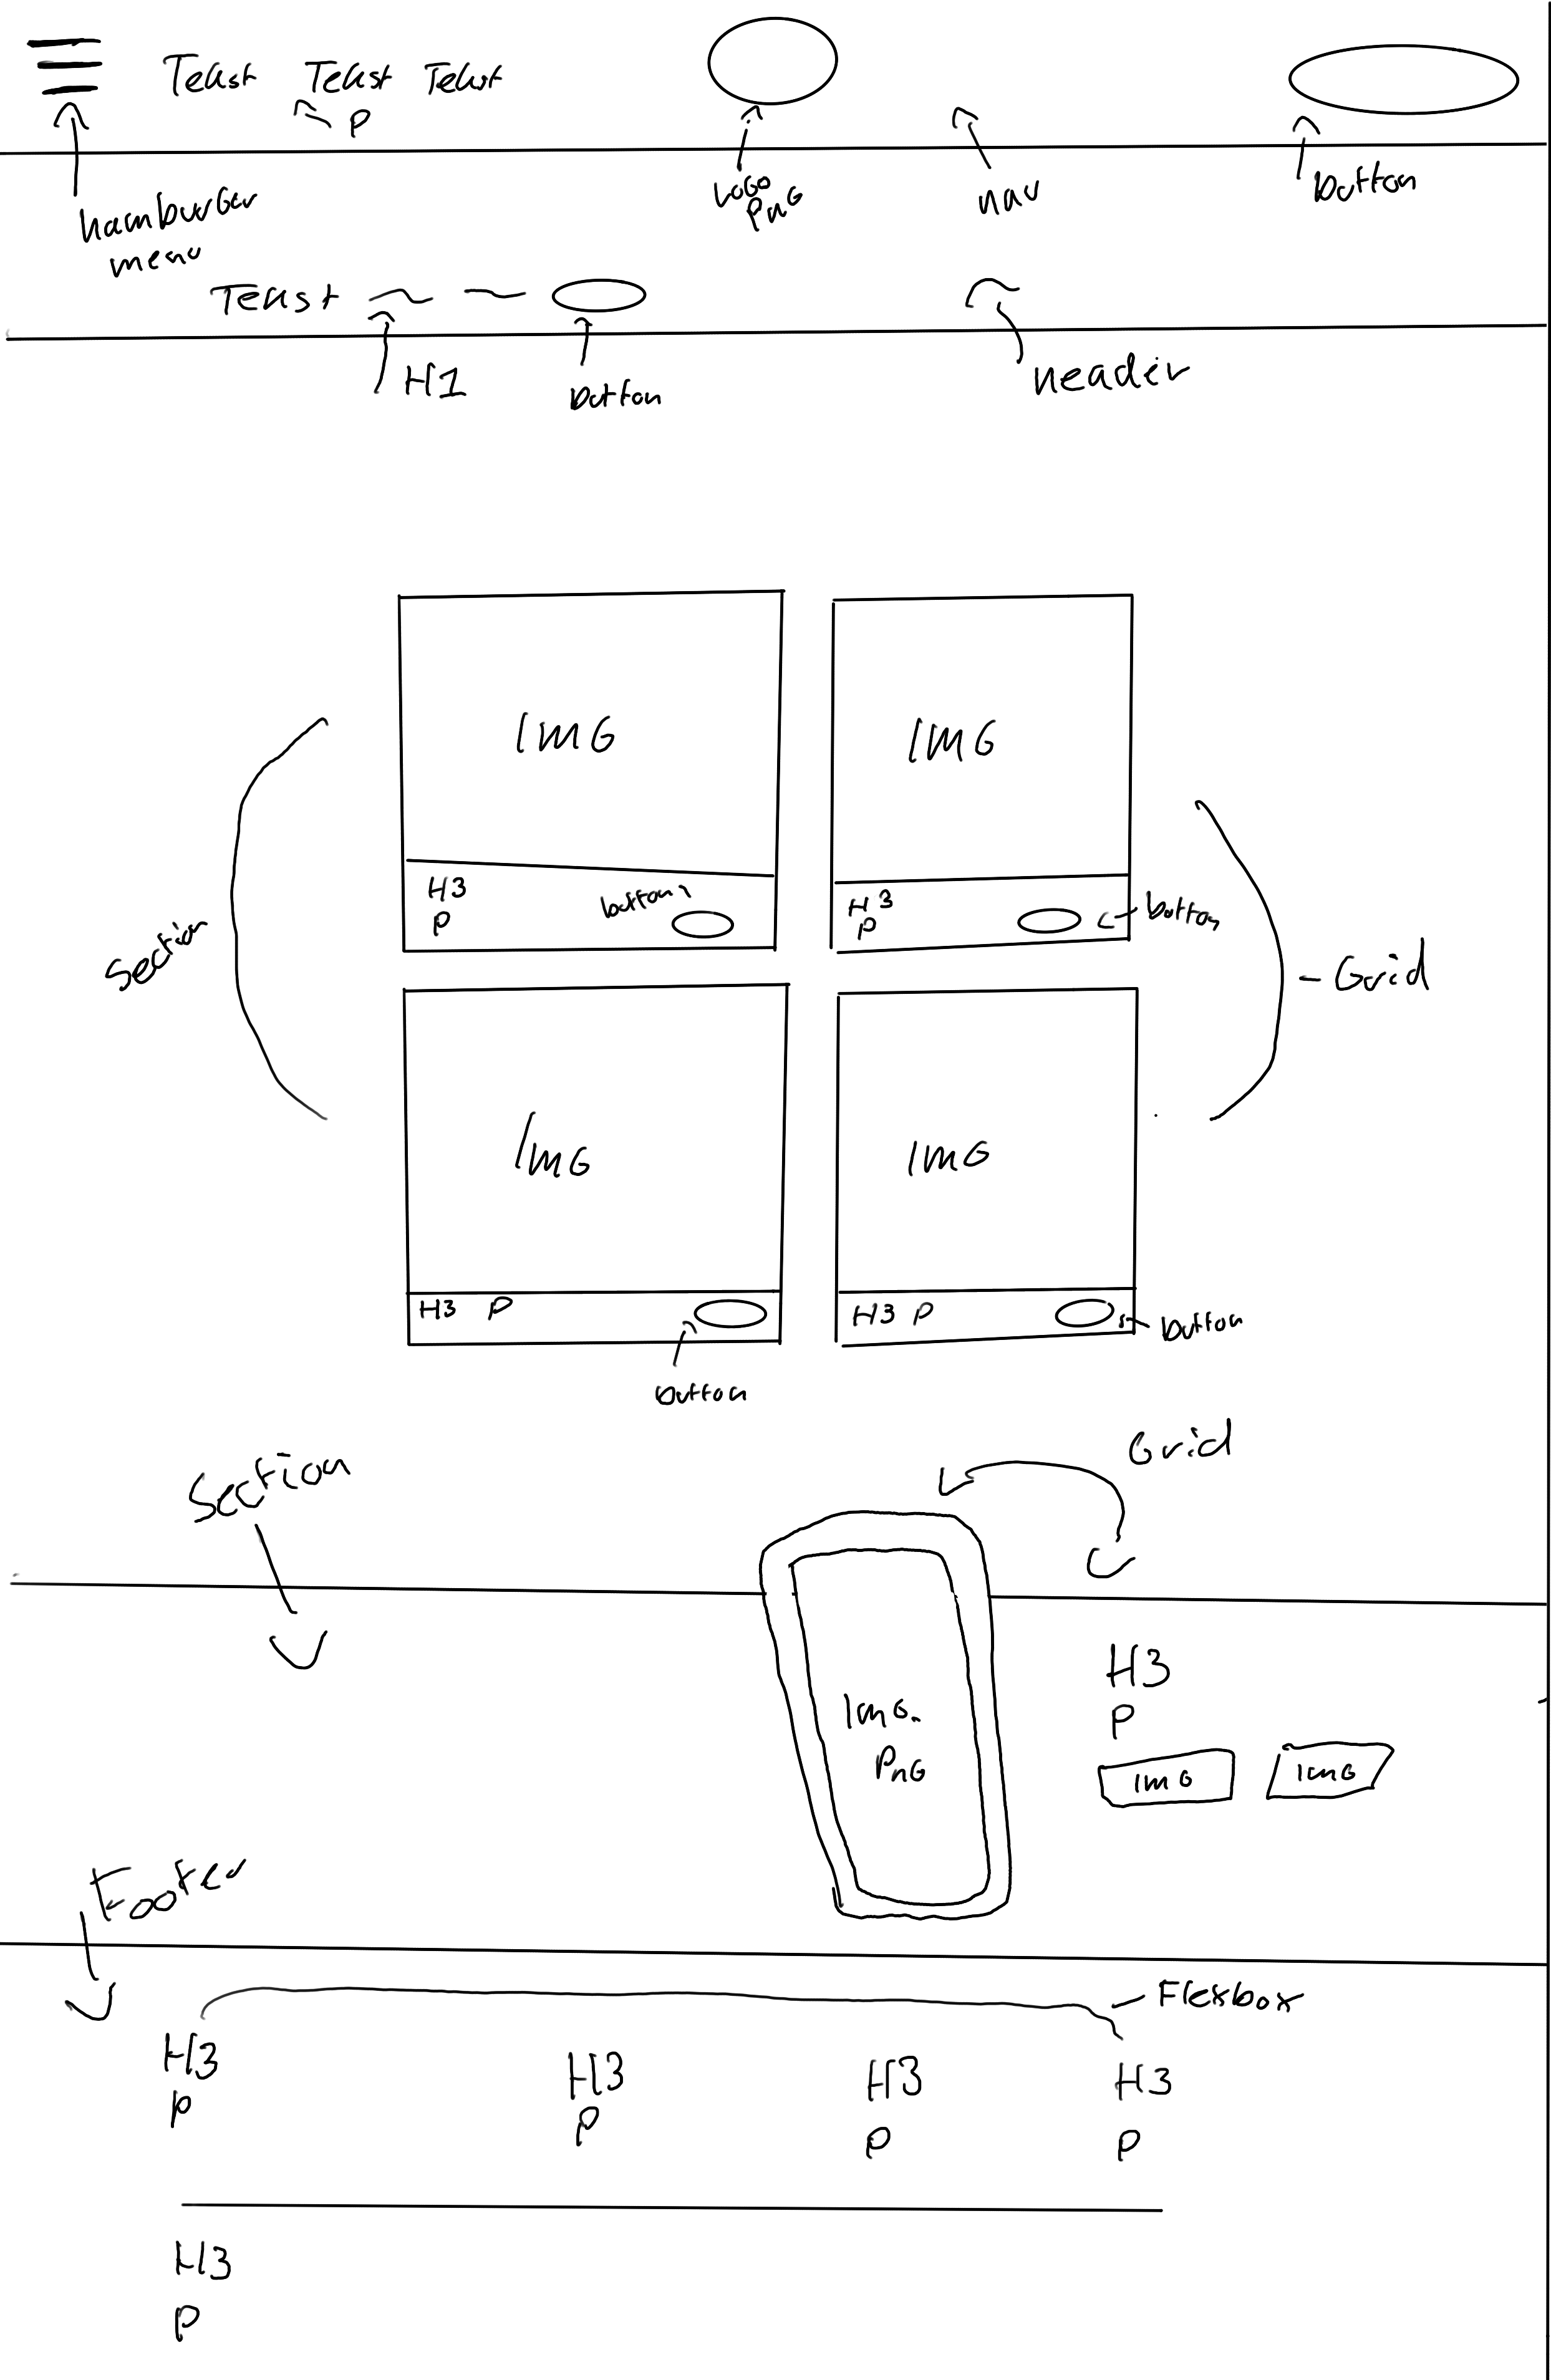 Tekst Tekst Tekst
P
hamburger
menu
LOGO
PNG
nav
button
Tekst
H1
button
Header
IMG
IMG
H3
P
button
H3
P
button
Section
Grid
IMG
IMG
H3 P
H3 P
button
button
Section
Grid
IMG.
PNG
H3
P
IMG
IMG
Footer
Flexbox
H3
P
H3
P
H3
P
H3
P
H3
P